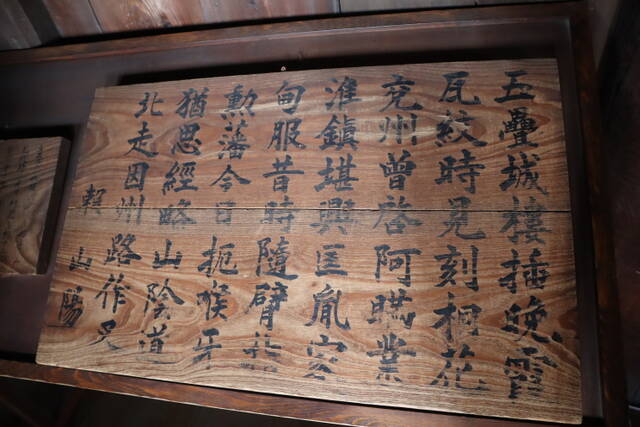 五疊城樓插晩霞
瓦紋時見刻桐花
兗州曾啓阿瞞業
淮鎮堪興匡胤家
甸服昔時隨臂指
勲藩今日扼喉牙
猶思經略山陰道
北走因州路作叉
頼山陽